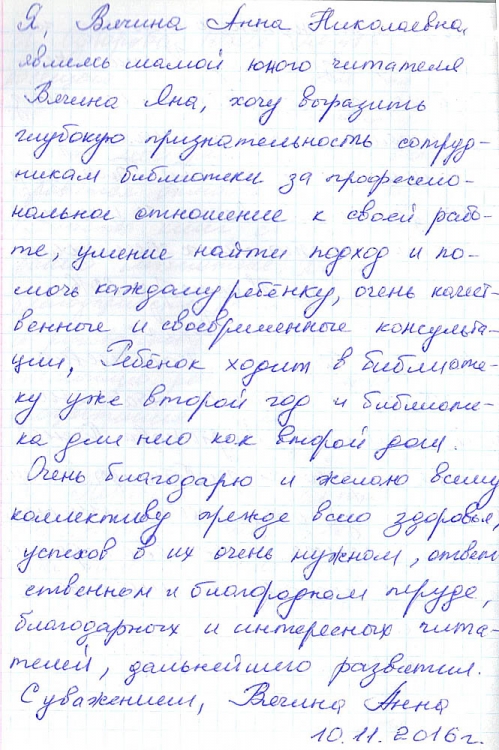 Я, Вячина Анна Николаевна,
являясь мамой юного читателя
Вячина Яна, хочу выразить
глубокую признательность сотруд-
никам библиотеки за профессио-
нальное отношение к своей рабо-
те, умение найти подход и по-
мочь каждому ребёнку, очень качест-
венные и своевременные консульта-
ции, Ребёнок ходит в библиоте-
ку уже второй год и библиоте-
ка для него как второй дом.
Очень благодарю и желаю всему
коллективу прежде всего здоровья,
успехов в их очень нужном, ответ
ственном и благородном труде,
благодарных и интересных чита-
телей, дальнейшего развития.
С уважением, Вячина Анна
10.11.2016г.